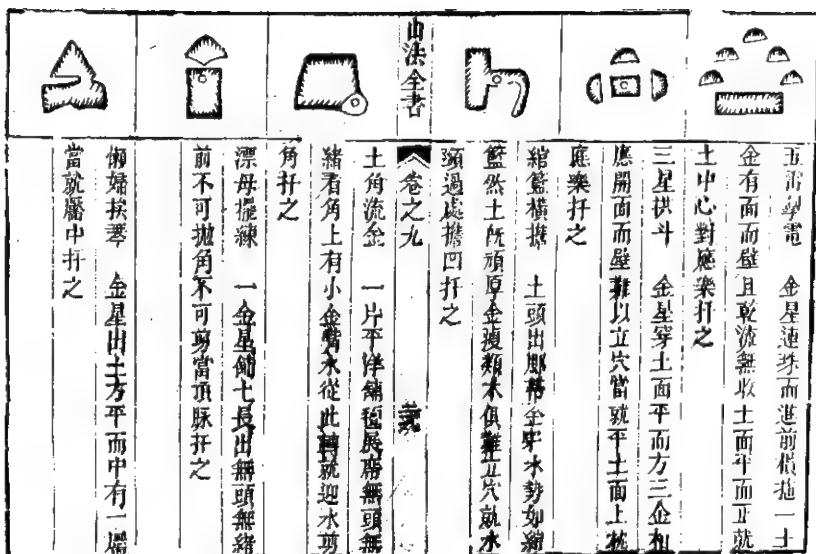 五雷掣電　金星連珠而進前橫拖一土
金有面而壁且乾流無收土面平而正就
土中心對應樂扦之
三星拱斗　金星穿土面平而方三金相
應開面而壁難以立穴當就平土面上枕
庭樂扦之
綰籃橫擔　土頭出腳帶金牢水勢如綰
籃然土既頑厚金復類水俱難立穴就水
頭過處擔凹扦之
山法全書
卷之九
土角流金　一片平洋鋪毡展席無頭無
緒看角上有小金觜水從此轉就迎水剪
角扦之
漂母擺練　一金星節土長出無頭無緒
前不可拋角不可剪當頂脉扦之
懶婦挨琴　金星出土方平而中有一靨
當就靨中扦之